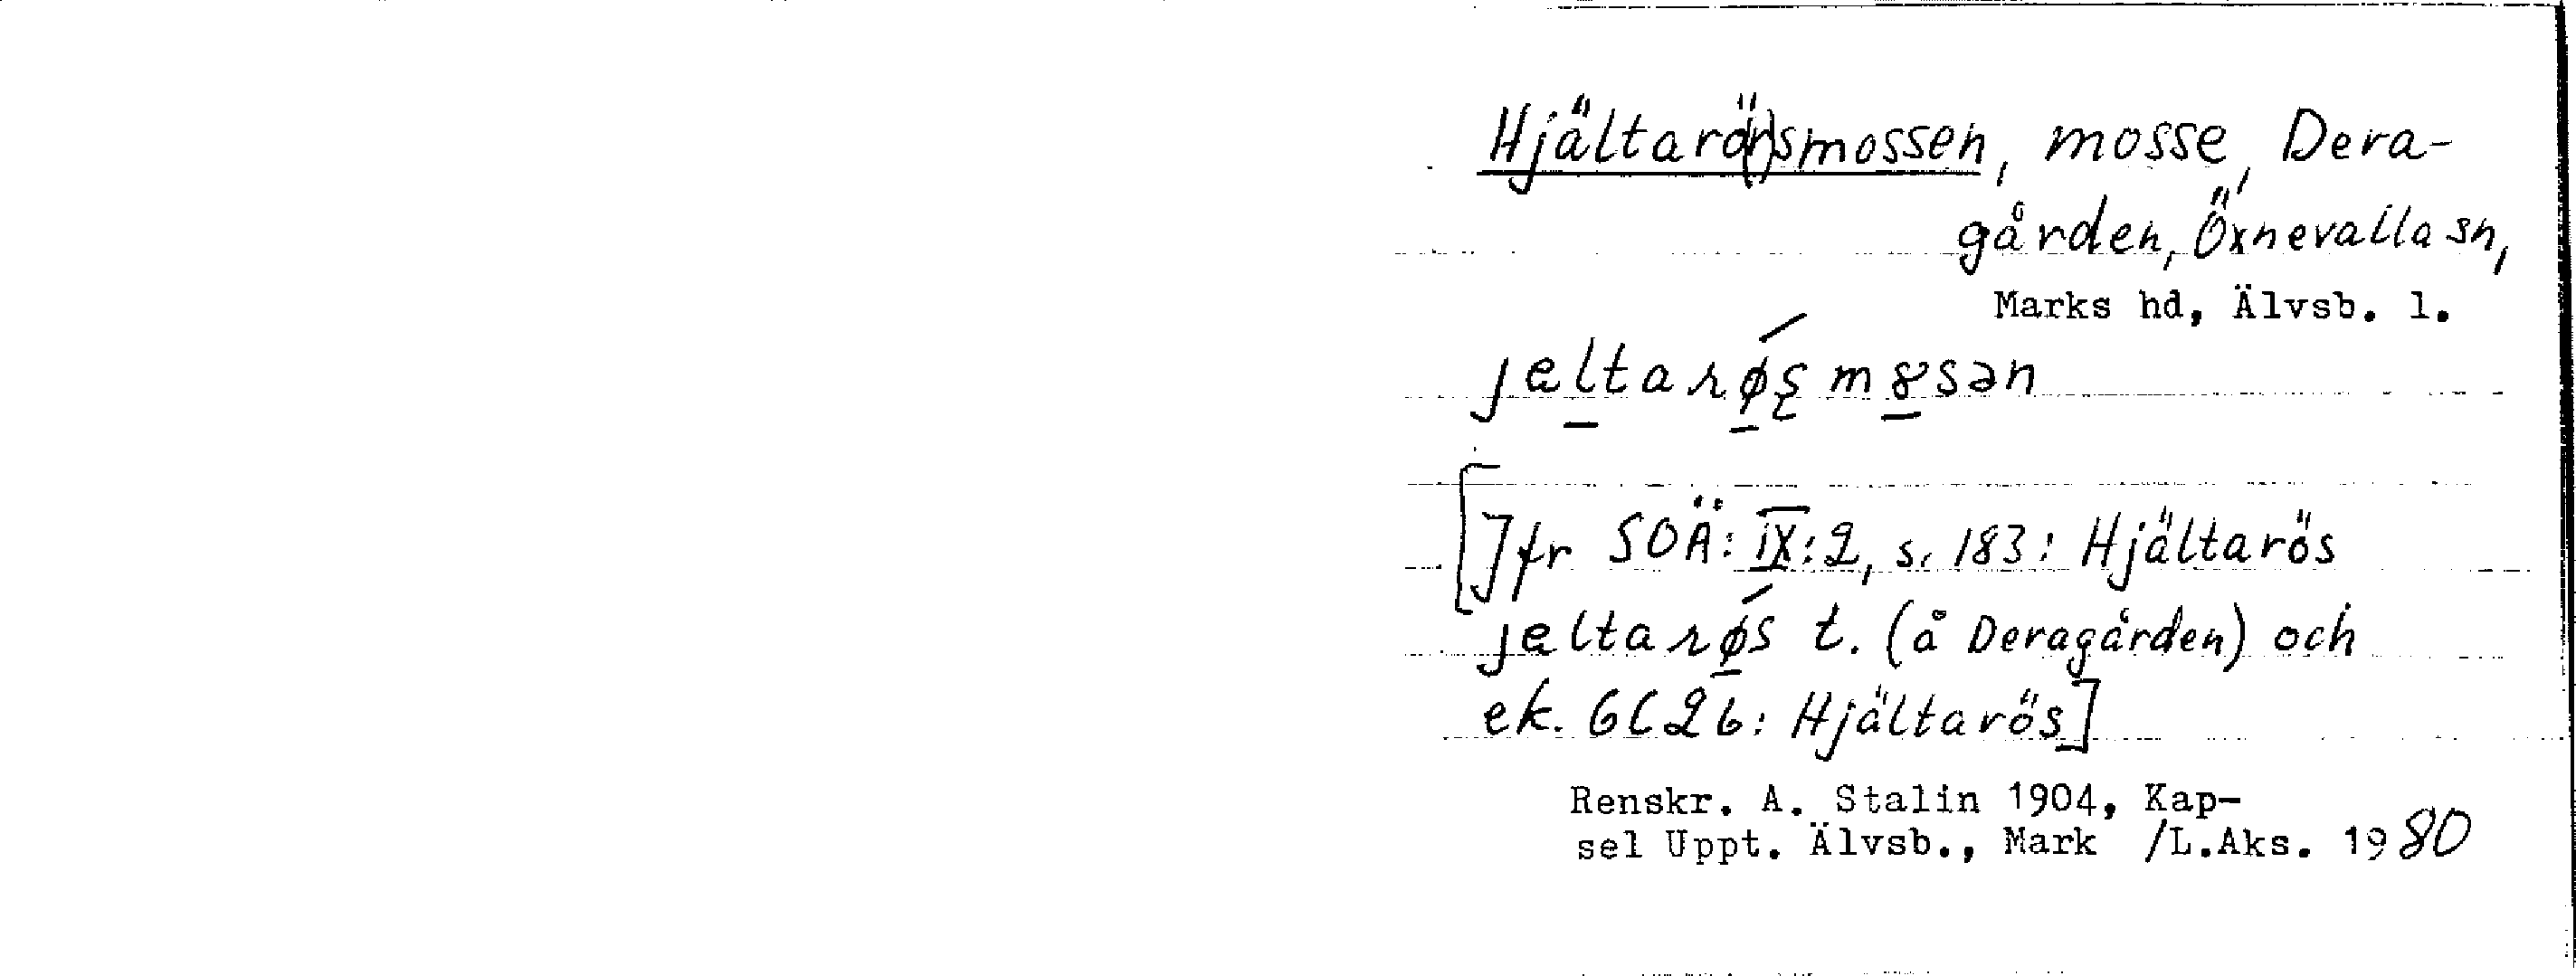 Hjältarö(r)smossen, mosse, Dera-
gården, Öxnevalla sn,
Marks hd, Älvsb. l.
jæltarǿʂmȣsən
[Jfr SOÄ: IX:2, s. 183: Hjältarös
jæltarǿs t. (å Deragården) och
ek. 6C2b: Hjältarös]
Renskr. A. Stalin 1904, Kap-
sel Uppt. Älvsb., Mark /L.Aks. 1980